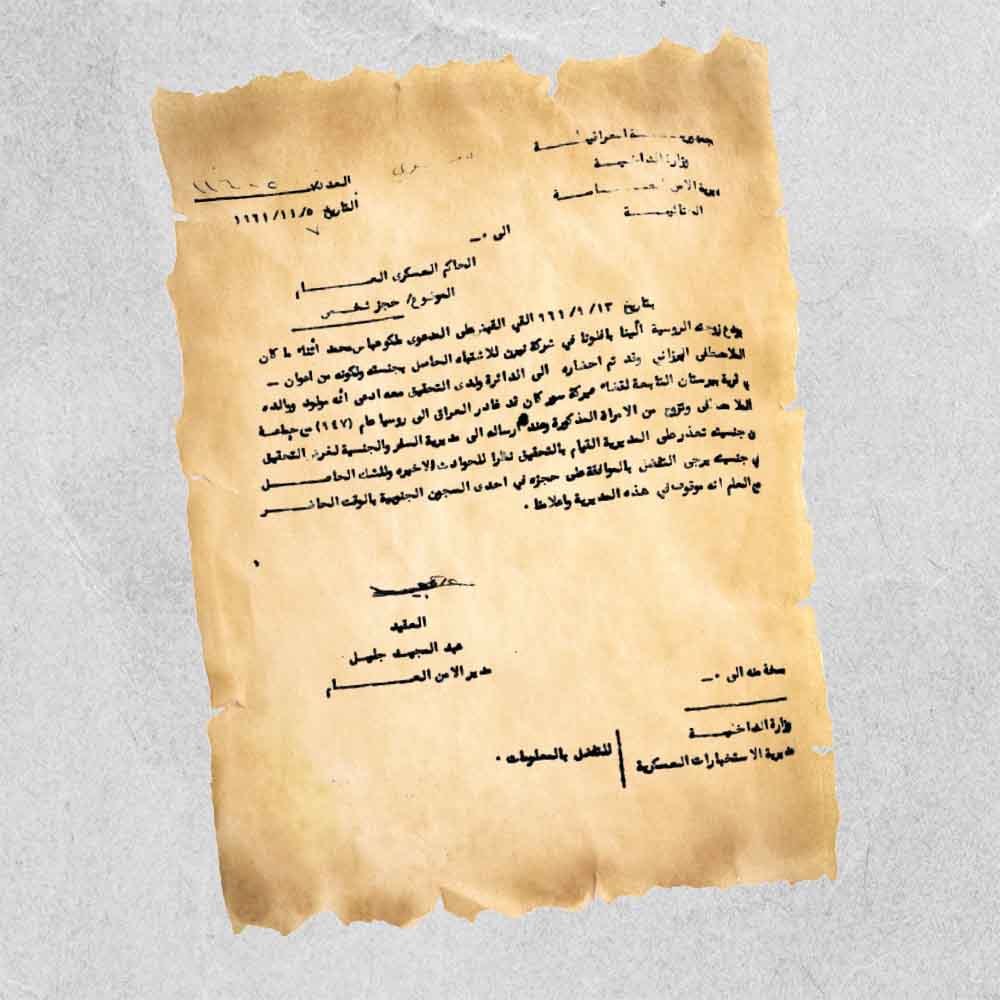 وزارة الداخلية
مديرية الامن العامة
العدد
التاريخ ١٩٦١/١١/٥
الى ٠ــ
الحاكم العسكرى العـــام
الموضوع/ حجز شخص
بتاريخ ٩٦١/٩/١٣ القي القبض على المدعوى عباس محمد اثناء ما كان
الروسية ألينا في شركة للاشتباه الحاصل بجنسيته ولكونه من اعوان ــ
البرزاني وقد تم احضاره الى الدائرة ولدى التحقيق معه ادعى انه مولود ووالده
في قرية بيرستان التابعة لقضاء قد غادر العراق الى روسيا عام (٩٤٧) مع جماعة
وتزوج من الامرأة المذكورة وعند ارساله الى مديرية السفر والجنسية لغرض التحقيق
عن جنسيته تعذر على المديرية القيام بالتحقيق نظرا للحوادث الاخيره وللشك الحاصـــل
في جنسيته يرجى التفضل بالموافقة على حجزه في احدى السجون الجنوبية بالوقت الحاضـــر
مع العلم انه موقوف في هذه المديرية واعلامنا ٠
العقيد
عبد المجيـد جليل
مدير الامن العـــام
نسخة منه الى ٠ــ
وزارة الداخليـــة
مديرية الاستخبارات العسكرية
للتفضل بالمعلومات ٠